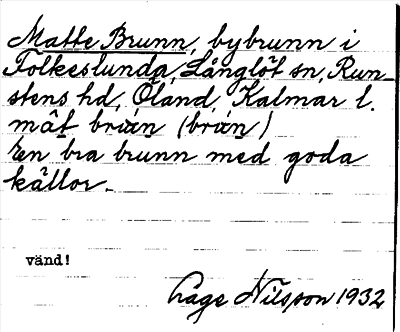 Matte Brunn, bybrunn i
Folkeslunda, Långlöt sn, Run-
stens hd, Öland, Kalmar l.
mat
En bra brunn med goda
källor.
vänd!
Åage Nilsson 1932